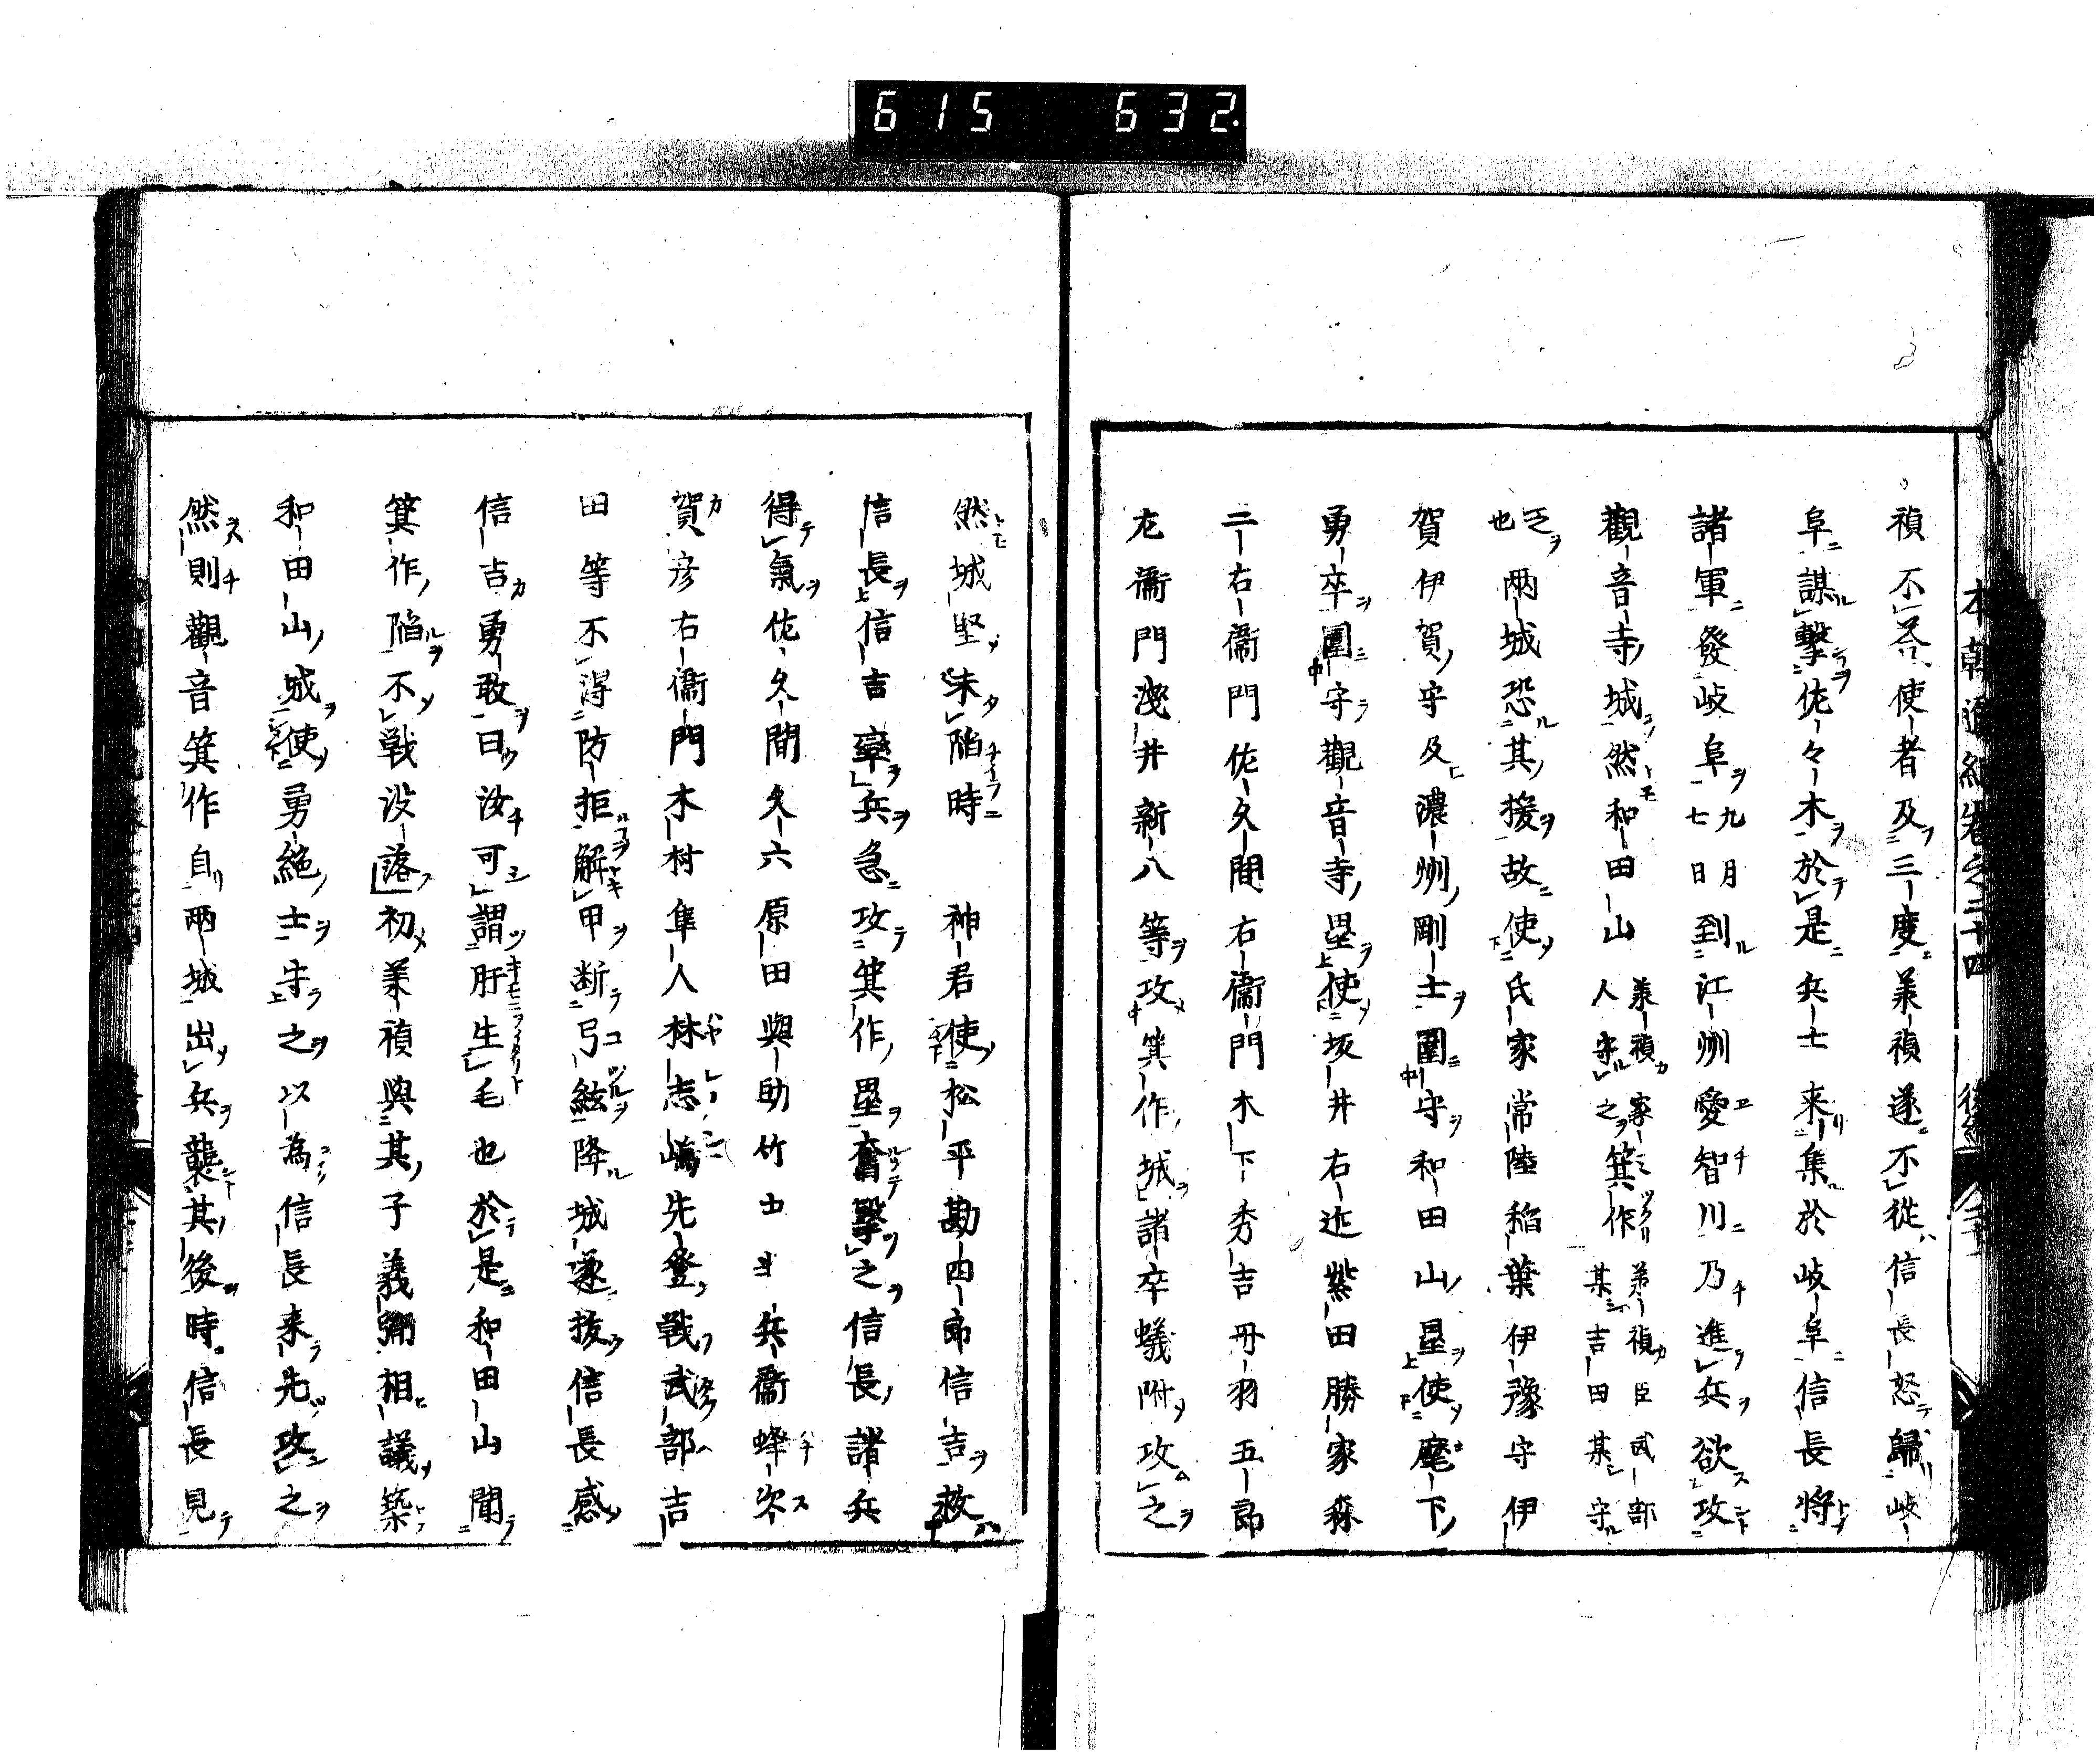 615 632.
本朝通紀卷之二十四 後編
禎不答使者及三度義禎遂不從信長怒歸岐
阜謀擊佐々木於是兵士来集於岐阜信長將
諸軍發岐阜九月七日到江州愛智川乃進兵欲攻
觀音寺城然和田山義禎家人守之箕作義禎臣武部某吉田某守
之也兩城恐其援故使氏家常陸稲葉伊豫守伊
賀伊賀守及濃州剛士圍守和田山塁使麾下
勇卒圍守觀音寺塁使坂井右近柴田勝家森
三右衞門佐久間右衞門木下秀吉丹羽五郎
左衞門淺井新八等攻箕作城諸卒蟻附攻之
然城堅未陥時 神君使松平勘四郎信吉救
信長信吉率兵急攻箕作塁奮擊之信長諸兵
得氣佐久間久六原田與助竹 兵衞蜂
賀彦右衞門木村隼人林志嶋先登戦武部吉
田等不得防拒解甲断弓絃降城遂拔信長感
信吉勇敢曰汝可謂肝生毛也於是和田山聞
箕作陥不戦没落初義禎與其子義弼相議築
和田山城使勇絶士守之以為信長来先攻之
然則觀音箕作自兩城出兵襲其後時信長見